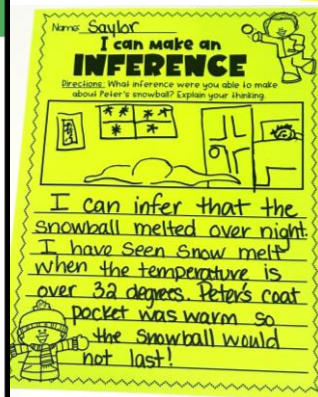 Name: Saylor
I can make an
INFERENCE
Directions: What inference were you able to make
about Peter's snowball? Explain your thinking.
I can infer that the
snowball melted over night.
I have seen snow melt
when the temperature is
over 32 degrees. Peter's coat
pocket was warm so
the snowball would
not last!